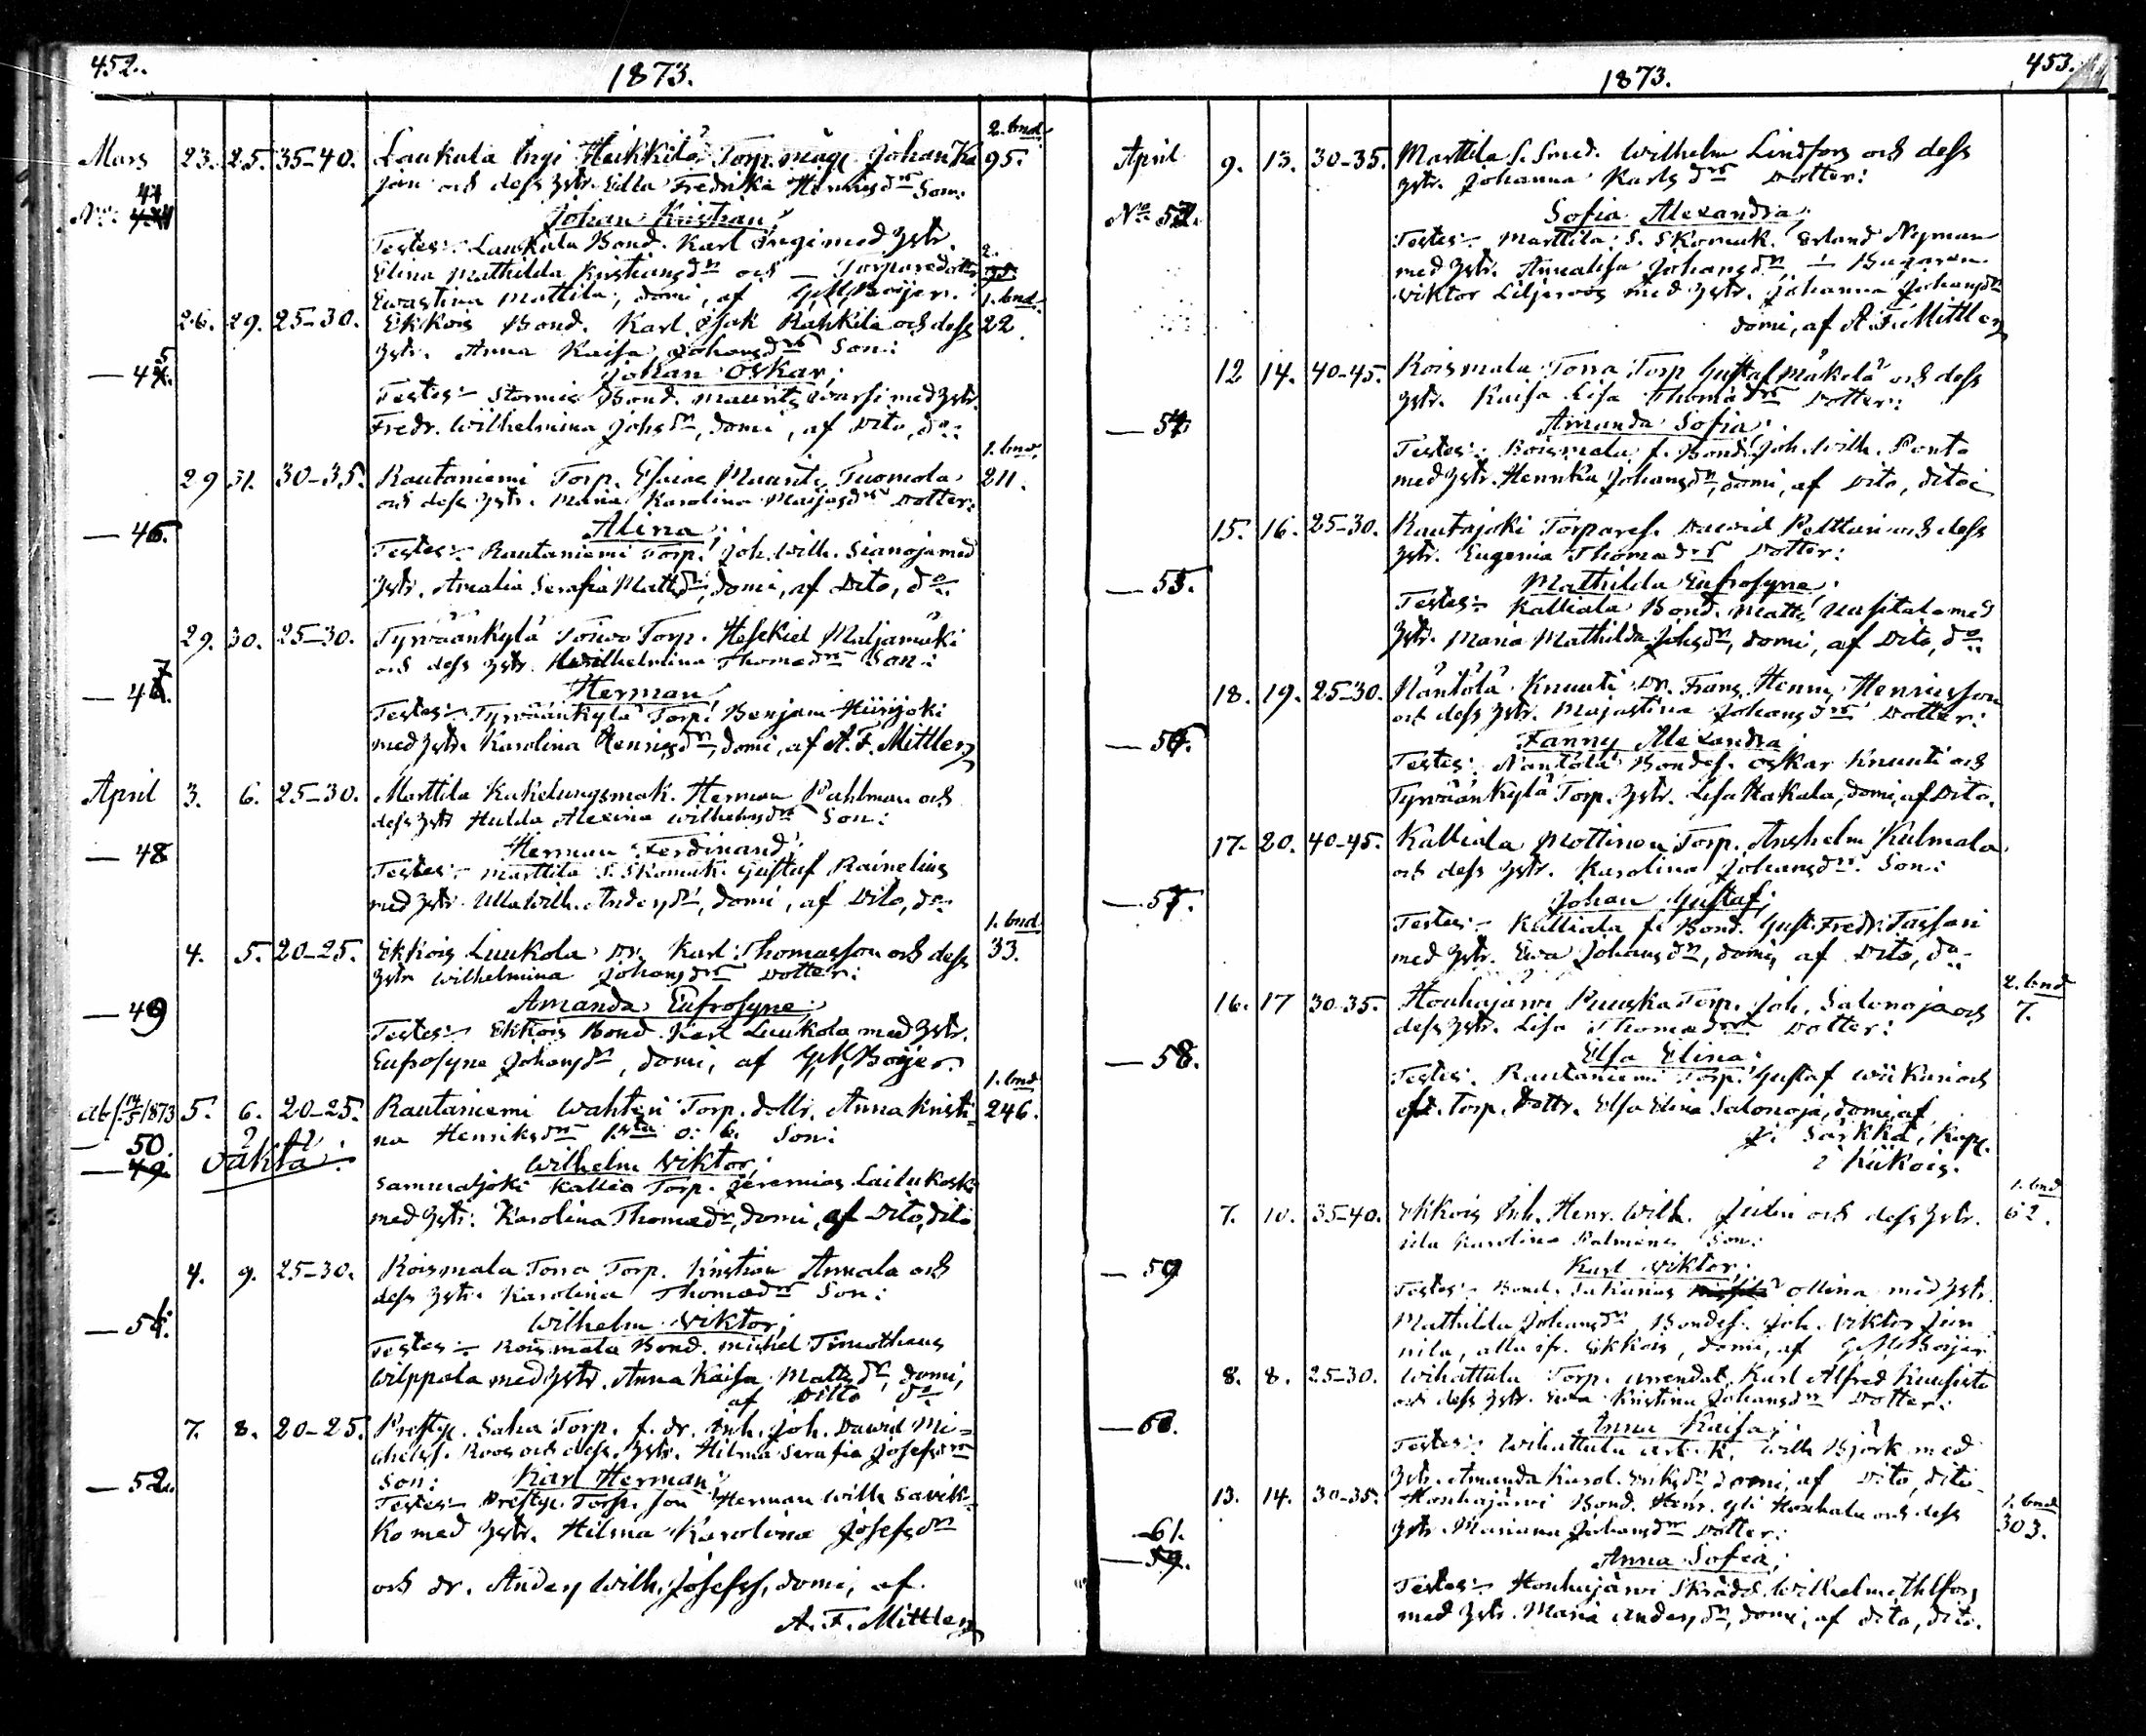 452.
1873.
2. bnd.
Mars 23. 25. 35-40. Laukula Ingi Heikkilä Torp. måg Johan Ka 95.
jan och dess hstr. Ulla Fredrika Henrigsdr Son:
No: 44
Johan Kristian;
Testes:- Laukula Bond. Karl Inngi med hstr.
Elina Mathilda Kristiansdr och - Torparedottr
Ewastina Mattila, domi, af G M Boijer.
1. bnd.
26. 29. 25-30. Ekkois Bond. Karl Isak Rahkila och dess 22.
hstr. Anna Kaisa Johansdr Son:
— 45.
Johan Oskar;
Testes:- Stormis Bond. Maurits Warsi med hstr.
Fredr. Wilhelmina Johsdr, domi, af Dito, do:
1. bnd.
29 31. 30-35. Rautaniemi Torp. Esaias Maunti Tuomola 211.
och dess hstr. Maria Karolina Maijasdr Dotter:
— 46.
Alina;
Testes:- Rautaniemi Torp. Joh. Wilh. Sianoja med
hstr. Amalia Serafia Mattsdr, domi, af Dito, do.
29. 30. 25-30. Tyrväänkylä Toiwo Torp. Hesekiel Maljamäki
och dess hstr. Wilhelmina Thomasdr Son:
— 47.
Herman;
Testes:- Tyrväänkylä Torp. Benjam Hiirijoki
med hstr. Karolina Henrigsdr, domi, af A. F. Mittler
April 3. 6. 25-30. Marttila Kakelungsmak. Herman Pahlman och
dess hstr Hulda Alexina Wilhelmsdr Son:
— 48
Herman Ferdinand;
Testes:- Marttila S. Skomak. Gustaf Rainelius
med hstr. Ulla Wilh. Andersdr, domi, af Dito, do
1. bnd.
4. 5. 20-25. Ekkois Luukola Dr. Karl Thomasson och dess 33.
hstr Wilhelmina Johansdr Dotter:
— 49
Amanda Eufrosyne;
Testes:- Ekkois Bond. Karl Luukola med hstr.
Eufrosyne Johansdr, domi, af G M Boijer.
1. bnd
5. 6. 20-25. Rautaniemi Wahteri Torp. dottr. Anna Kristi- 246.
na Henriksdr 1sta o: b. Son:
— 50.
— 49
oäkta:
Wilhelm Wiktor;
Sammaljoki Kallio Torp. Jeremias Lailukoski
med hstr. Karolina Thomædr, domi, af Dito, dito
4. 9. 25-30. Roismala Tona Torp. Kristian Annala och
dess hstr. Karolina Thomædr Son:
— 51.
Wilhelm Wiktor;
Testes:- Roismala Bond. Michel Timotheus
Wilppala med hstr. Anna Kaisa Mattsdr, domi,
af Ditto do
7. 8. 20-25. Prestg. Saha Torp. f. dr. Inh. Joh. Dawid Mi-
chelss. Roos och dess hstr. Hilma Serafia Josefsdr
— 52.
Son: Karl Herman;
Testes:- Prestg. Torp. son Herman Wilh Savik-
ko med hstr. Hilma Karolina Josefsdr
och dr. Anders Wilh. Josefss, domi, af
A. F. Mittler
453.
1873.
April 9. 13. 30-35. Marttila S. Smed. Wilhelm Lindfors och dess
hstr. Johanna Karlsdr Dotter:
No 53.
Sofia Alexandra;
Testes:- Marttila S. Skomak. Erland Nyman
med hstr. Annalisa Johansdr - Bagaren
Wiktor Liljeroos med hstr. Johanna Johansdr
domi, af A. F. Mittler
12 14. 40-45. Roismala Tona Torp Gustaf Mäkelä och dess
hstr. Kaisa Lisa Thomædr Dotter:
— 54
Amanda Sofia;
Testes:- Roismala f. Bond. Joh. Wilh. Ponto
med hstr. Henrika Johansdr, domi, af Dito, dito
15. 16. 25-30. Rautajoki Torpares. Dawid Pelttari och dess
hstr. Eugenia Thomædr Dotter:
— 55.
Mathilda Eufrosyne;
Testes:- Kalliala Bond. Matts Uusitalo med
hstr. Maria Mathilda Johsdr, domi, af Dito, do.
18. 19. 25-30. Näntölä Knuuti Dr. Frans Henrig Henricsson
och dess hstr. Majastina Johansdr Dotter:
— 56.
Fanny Alexandra
Testes: Näntölä Bondes. Oskar Knuuti och
Tyrväänkylä Torp. hstr. Lisa Hakala, domi, af Dito.
17. 20. 40-45. Kalliala Mottinen Torp. Anshelm Kulmala
och dess hstr. Karolina Johansdr. Son:
— 57.
Johan Gustaf;
Testes:- Kalliala f. Bond. Gust. Fredr. Tassari
med hstr. Ewa Johansdr, domi, af Dito, do.
2. bnd
16. 17 30-35. Houhajärvi Punska Torp. Joh. Salonoja och 7.
dess hstr. Lisa Thomædr Dotter:
— 58.
Elsa Elina;
Testes:- Rautaniemi Torp. Gustaf Wiikari och
Torp. Dottr. Elsa Elina Salonoja, domi, af
Särkkä, Kapl.
i Kiikois.
1. bnd
7. 10. 35-40. Ekkois Inh. Henr. Wilh. och dess hstr. 62.
Ulla Karolina Palmens Son:
— 59
Karl Wiktor;
Testes:- Bond. Sakarias Ollina med hstr.
Mathilda Johansdr, Bondes. Joh. Wiktor Jun
nila, alla ifr. Ekkois, domi, af G M Boijer
8. 8. 25-30. Wihattula Torp. arrendat. Karl Alfred Kuusisto
och dess hstr. Ewa Kristina Johansdr Dotter:
— 60.
Anna Kaisa;
Testes:- Wihattula arb. k. Wilh Björk med
hstr. Amanda Karol. Eriksdr, domi, af Dito, dito
13. 14. 30-35. Houhajärvi Bond. Henr. Yli Houhala och dess
1. bnd
303.
hstr. Mariana Johansdr Dotter:
61.
— 59.
Anna Sofia;
Testes:- Houhajärvi Skrädd. Wilhelm Ahlfors
med hstr. Maria Andersdr, domi, af dito, dito.